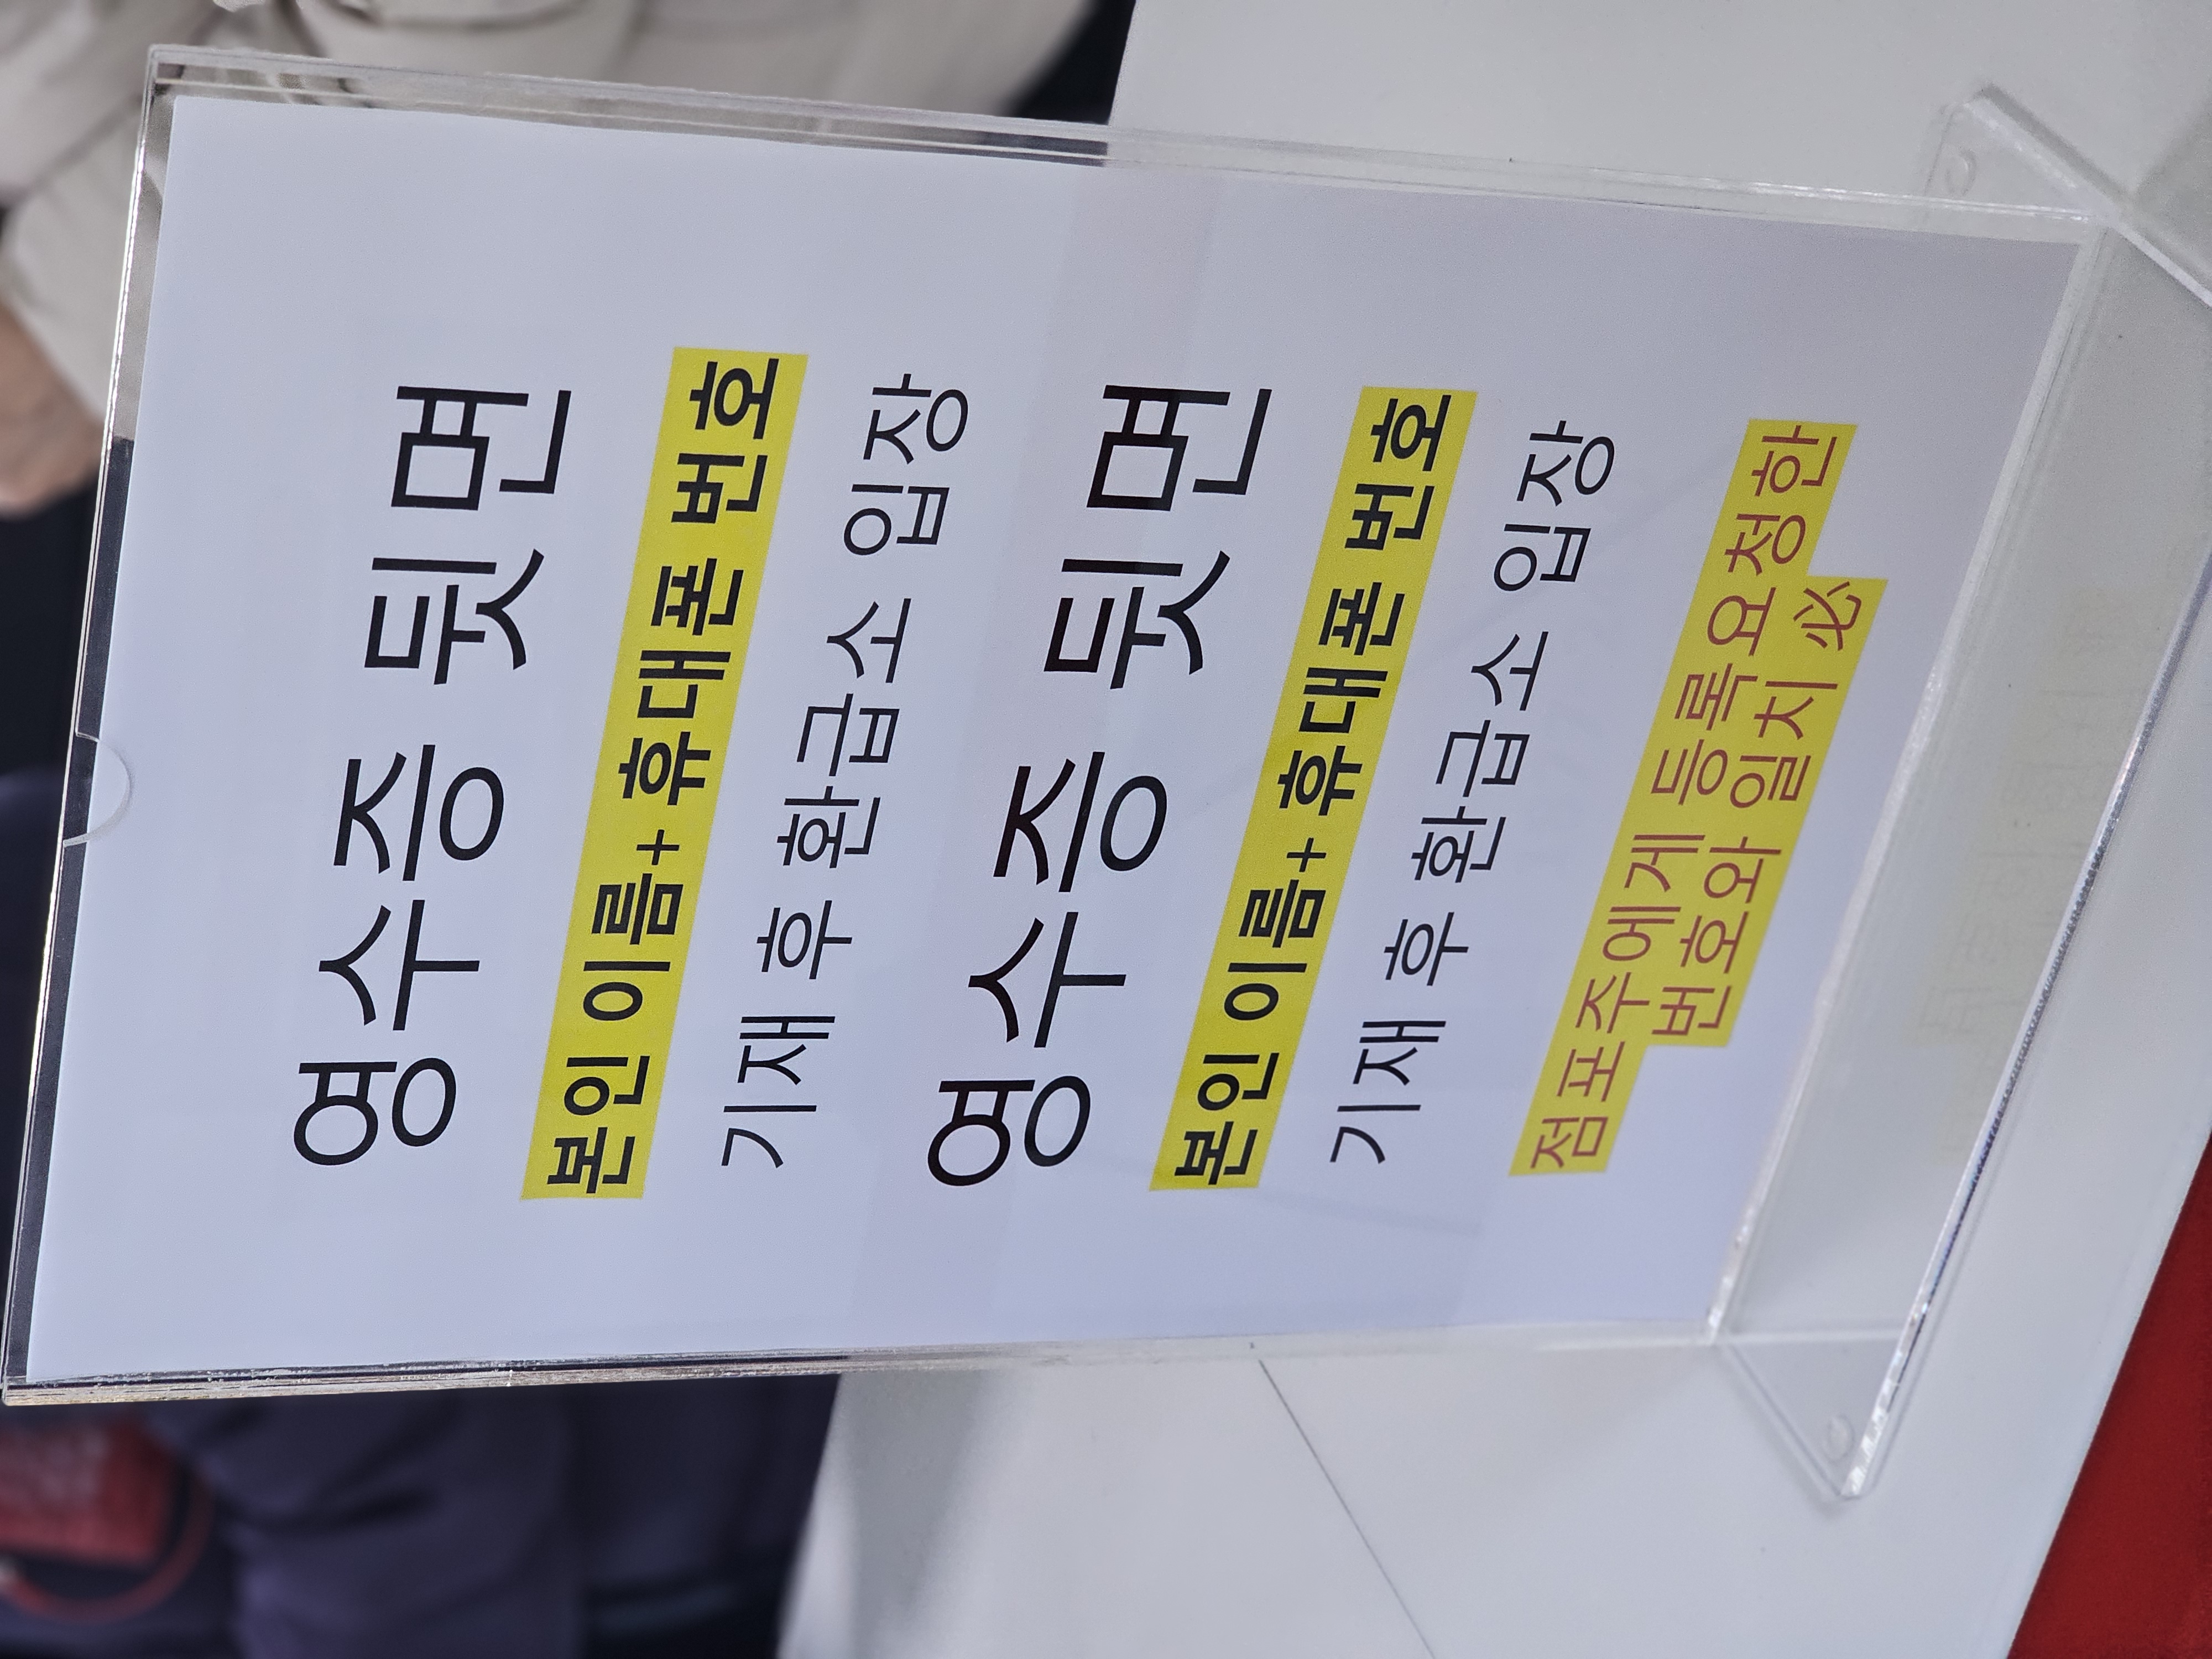 영수증 뒷면
본인 이름+ 휴대폰 번호
기재 후 환급소 입장
영수증 뒷면
본인 이름+ 휴대폰 번호
기재 후 환급소 입장
점포주에게 등록요청한
번호와 일치 必